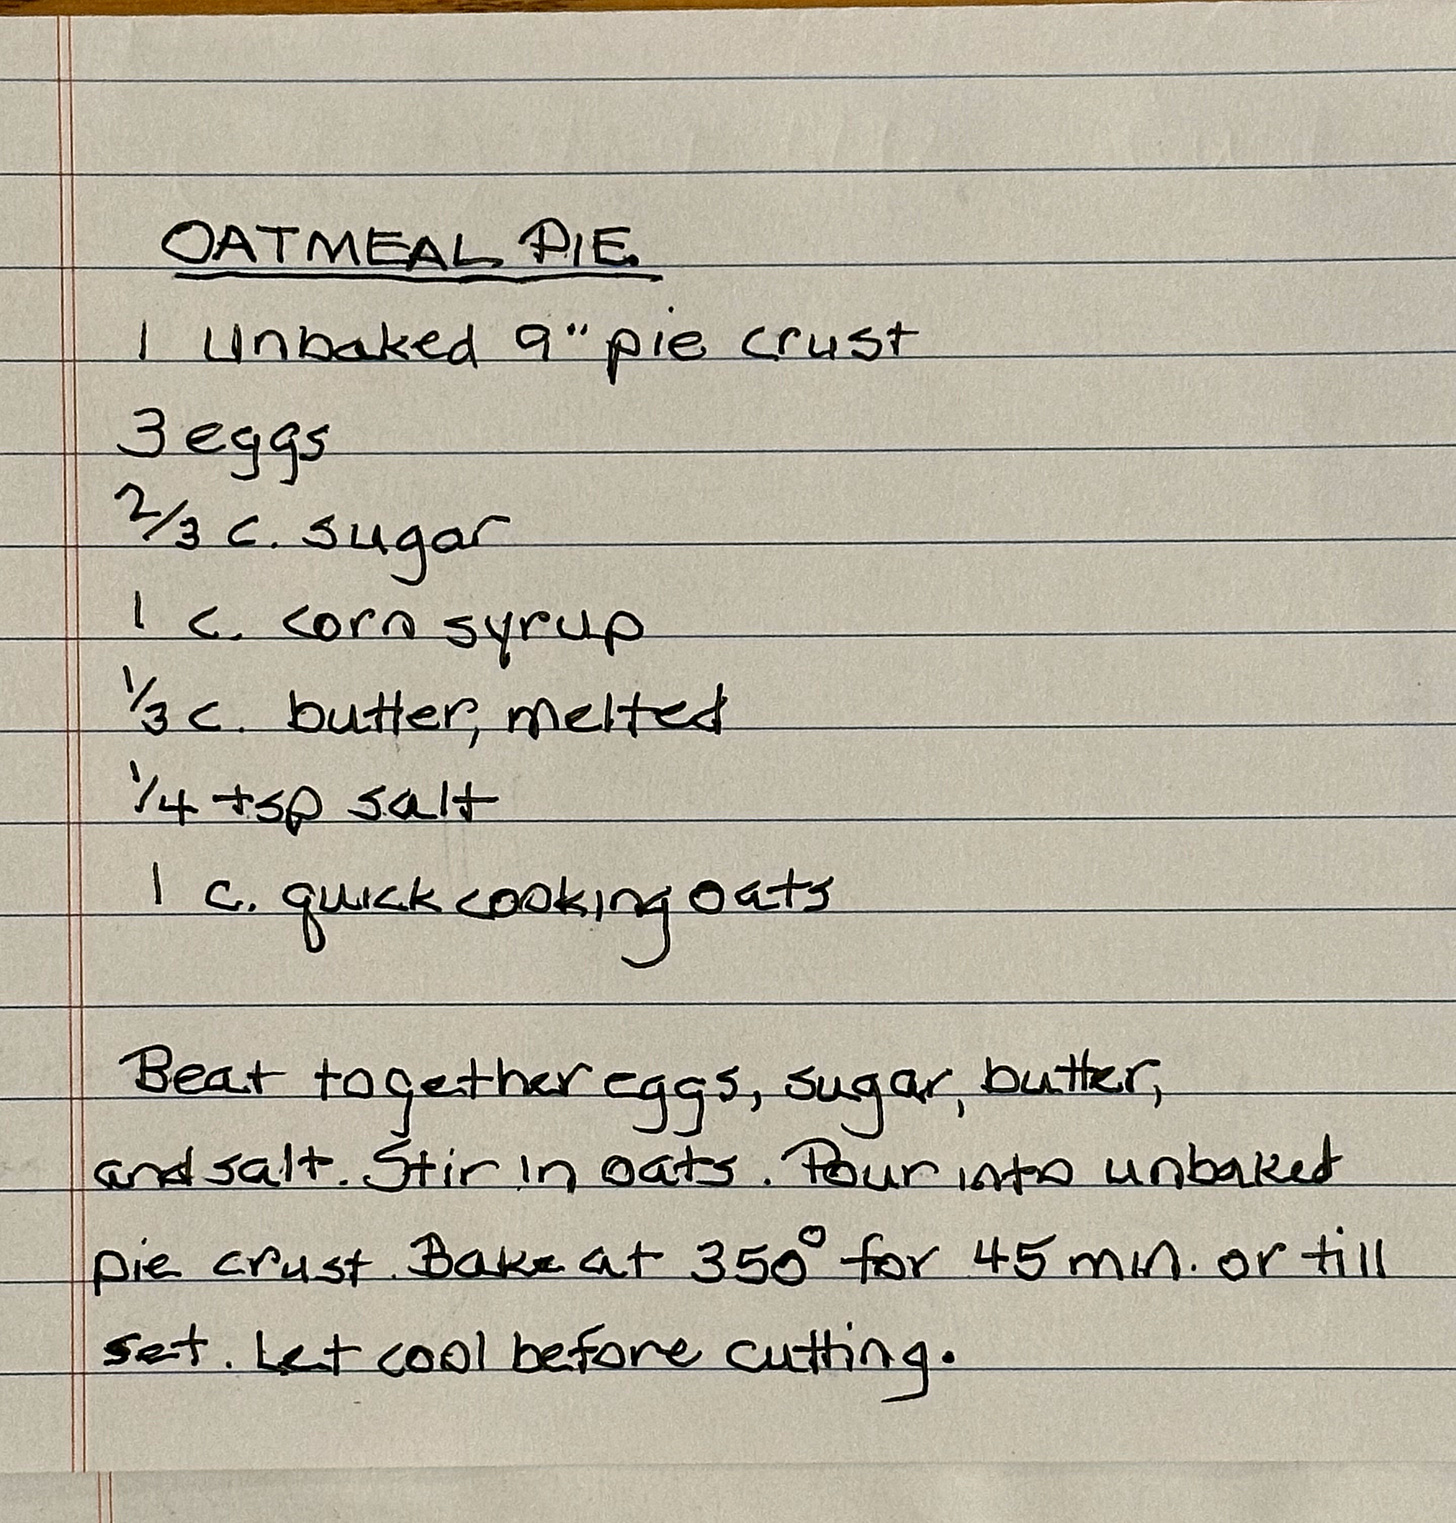 OATMEAL PIE
1 Unbaked 9" pie crust
3 eggs
2/3 c. sugar
1 c. corn syrup
1/3 c. butter, melted
1/4 tsp salt
1 c. quick cooking oats
Beat together eggs, sugar, butter,
and salt. Stir in oats. Pour into unbaked
pie crust. Bake at 350° for 45 min. or till
set. Let cool before cutting.